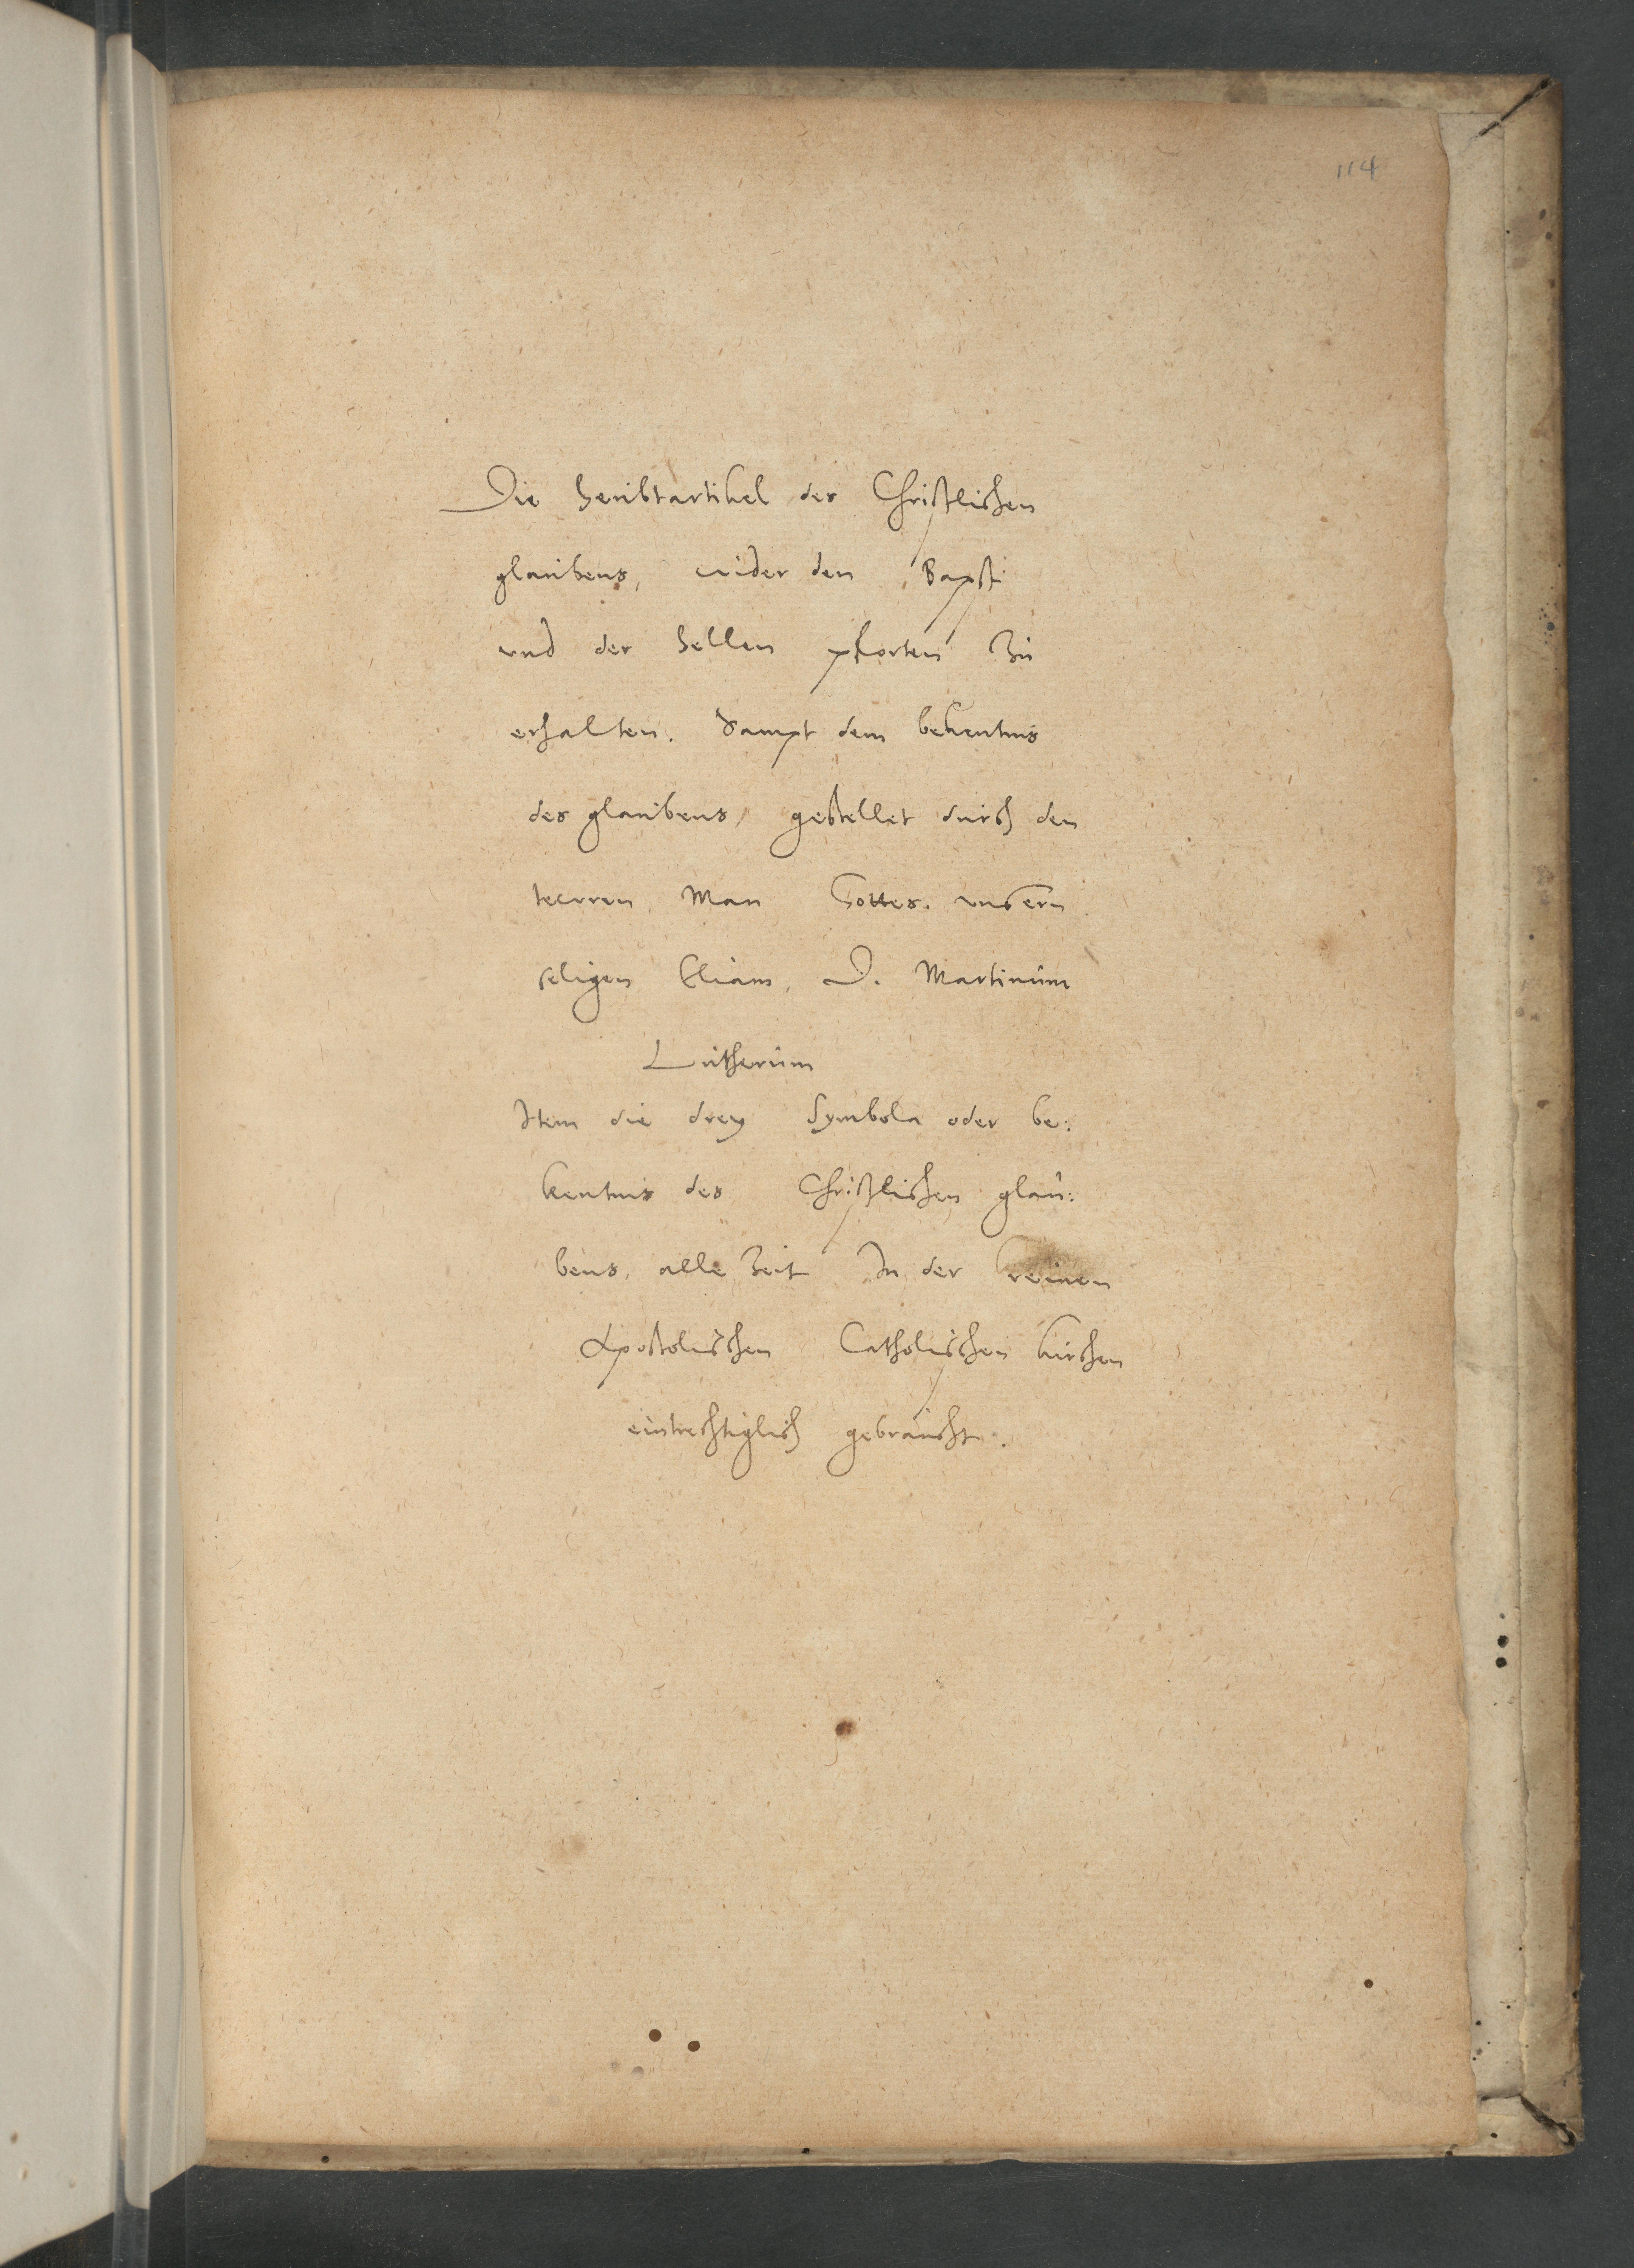 114
Die heubtartikel des Christlichen
glaubens, wider den Bapst
vnd der hellen pforten Zu
erhalten. Sampt dem bekentnis
des glaubens, gestellet durch den
tewren Man Gottes. vnsern
seligen Eliam, D. Martinum
Lutherum
Item die drey Symbola oder be:
kentnis des Christlichen glau:
bens, alle Zeit In der reinen
Apostolischen Catholischen kirchen
eintrechtiglich gebraucht.